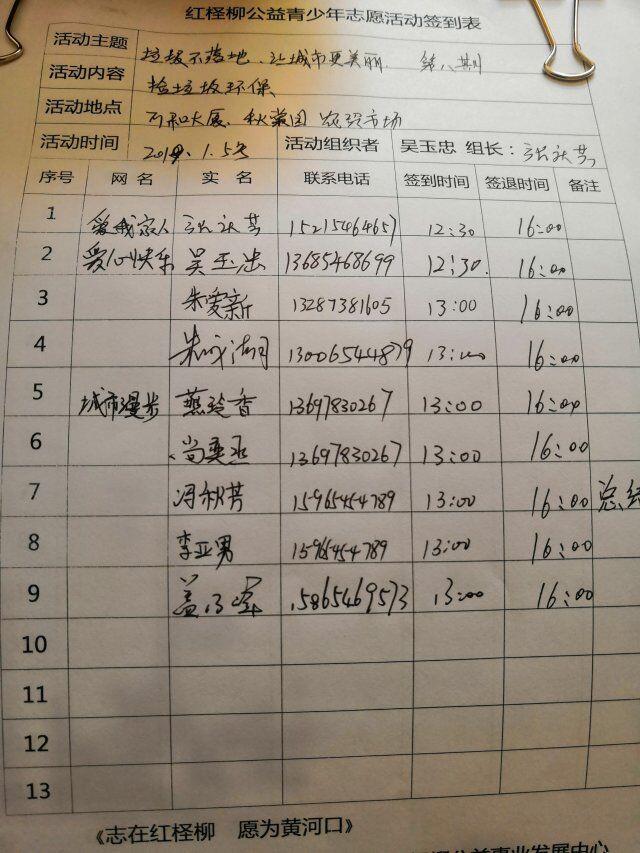 红柽柳公益青少年志愿活动签到表
活动主题 垃圾不落地、让城市更美丽 第八期
活动内容 捡垃圾环保
活动地点 万和大厦、秋菊园 农贸市场
活动时间 2019.1.5号 活动组织者 吴玉忠 组长：张秋芳
序号 网名 实名 联系电话 签到时间 签退时间 备注
1 爱我家人 张秋芳 15215464657 12:30 16:00
2 爱心快乐 吴玉忠 13685468699 12:30. 16:00
3 朱爱新 13287381605 13:00 16:00
4 朱 13006544879 13:00 16:00
5 城市漫步 燕玲香 13697830267 13:00 16:00
6 尚奕丞 13697830267 13:00 16:00
7 冯秋芳 15965454789 13:00 16:00 总结
8 李亚男 15965454789 13:00 16:00
9 盖 15865469573 13:00 16:00
10
11
12
13
《志在红柽柳 愿为黄河口》
公益事业发展中心